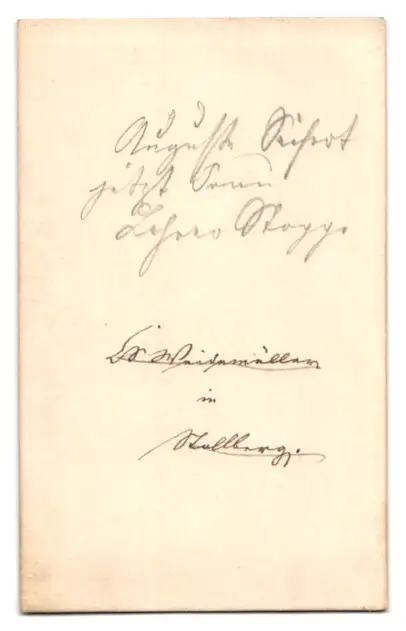 Auguste Seifert
jetzt Frau
Lehrer
Weidemüller
in
Stollberg.